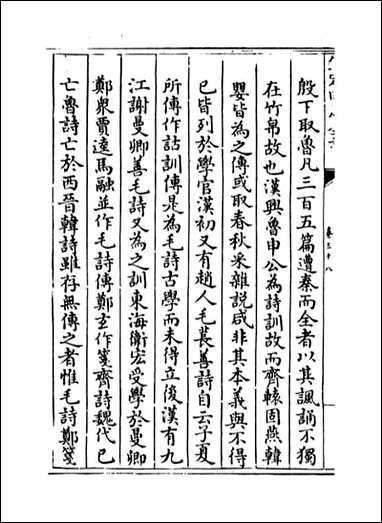 殷下取魯凡三百五篇遭秦而全者以其諷誦不獨
在竹帛故也漢興魯申公為詩訓故而齊轅固燕韓
嬰皆為之傳或取春秋采雜説咸非其本義與不得
已皆列於學官漢初又有趙人毛萇善詩自云子夏
所傳作詁訓傳是為毛詩古學而未得立後漢有九
江謝曼卿善毛詩又為之訓東海衛宏受學於曼卿
鄭衆賈逵馬融並作毛詩傳鄭玄作箋齊詩魏代已
亡魯詩亡於西晉韓詩雖存無傳之者惟毛詩鄭箋